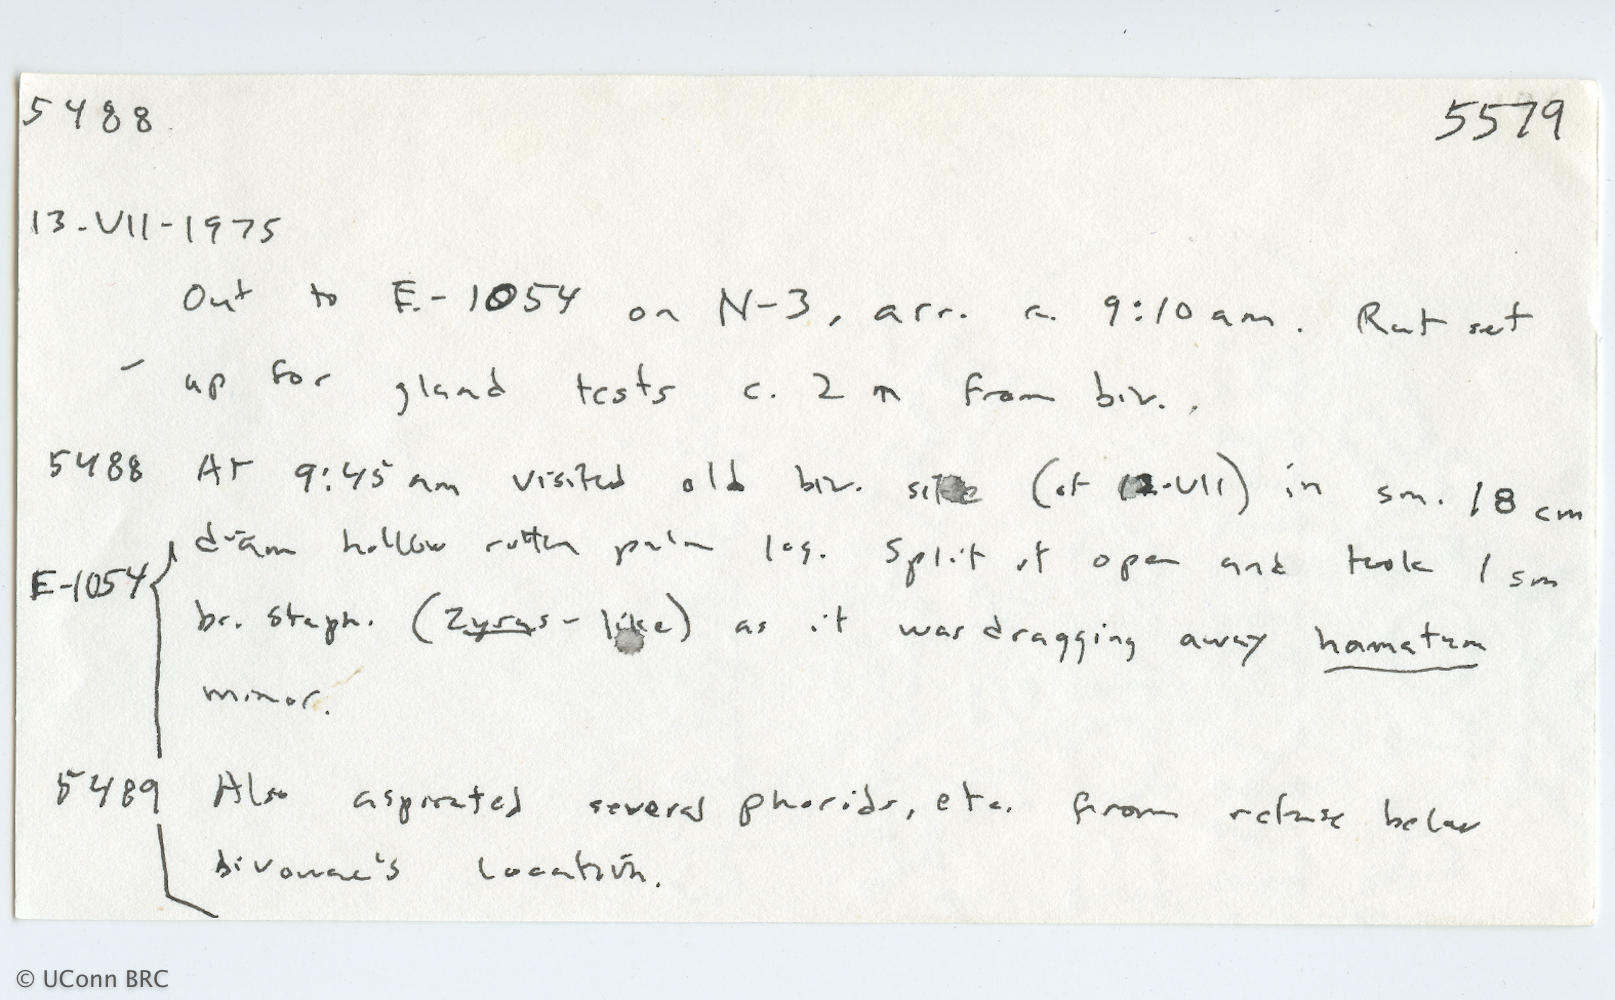 5488 5579
13-VII-1975
Out to E-1054 on N-3, arr. c. 9:10 am. Rat set
up for gland tests c. 2 m from biv.
5488 At 9:45 am visited old biv. site (of 12-VII) in sm. 18 cm
E-1054 diam hollow rotten palm log. Split it open and took 1 sm
br. staph. (Zyras-like) as it was dragging away hamatum
minor.
5489 Also aspirated several phorids, etc. from refuse below
bivouac's location.
© UConn BRC